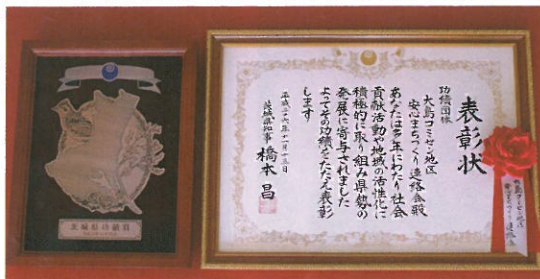 表彰状
功績団体
大島コミセン地区
安心まちづくり連絡会殿
あなたは多年にわたり社会
貢献活動や地域の活性化に
積極的に取り組み県勢の
発展に寄与されました
よってその功績をたたえ表彰
します
平成二十六年十一月十三日
茨城県知事 橋本 昌
大島コミセン地区
安心まちづくり連絡会
茨城県功績賞